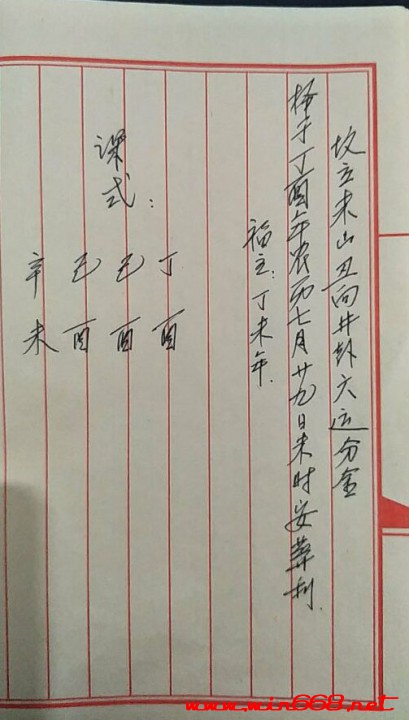 坟立未山丑向井卦六运分金
择于丁酉年农历七月廿九日未时安葬利.
福主:丁未年.
课式:
丁酉
己酉
己酉
辛未
www.min668.net